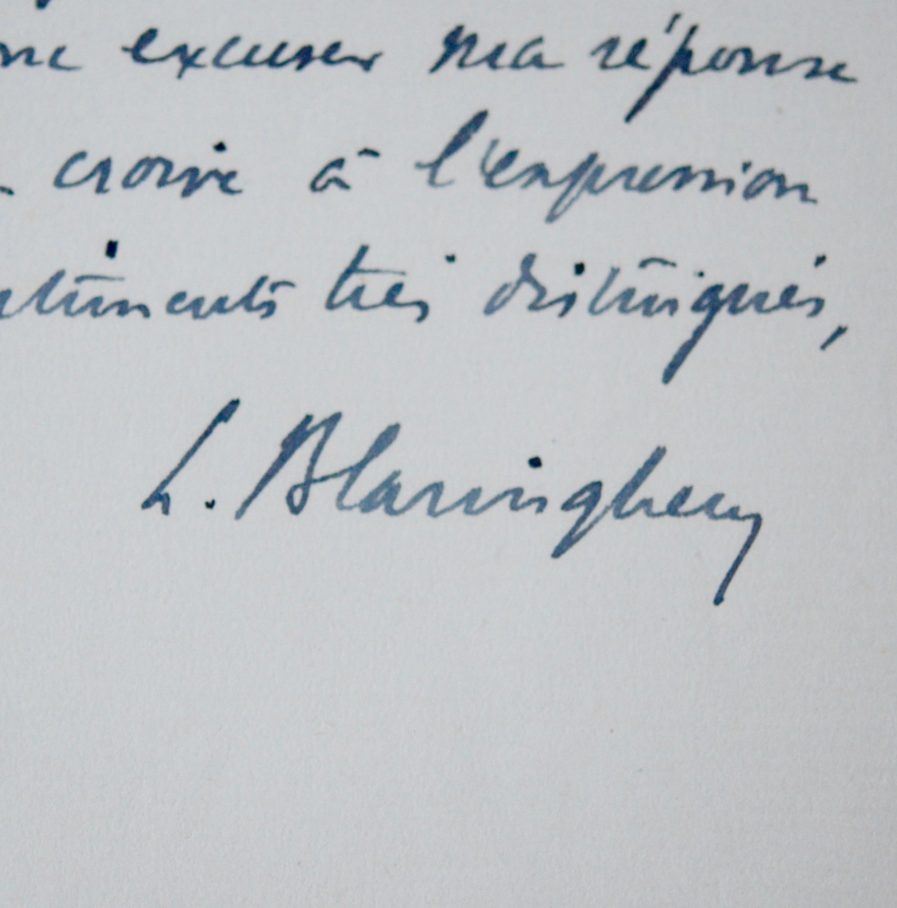 me excuser ma réponse
croire à l'expression
timents très distingués,
L. Blaringhem